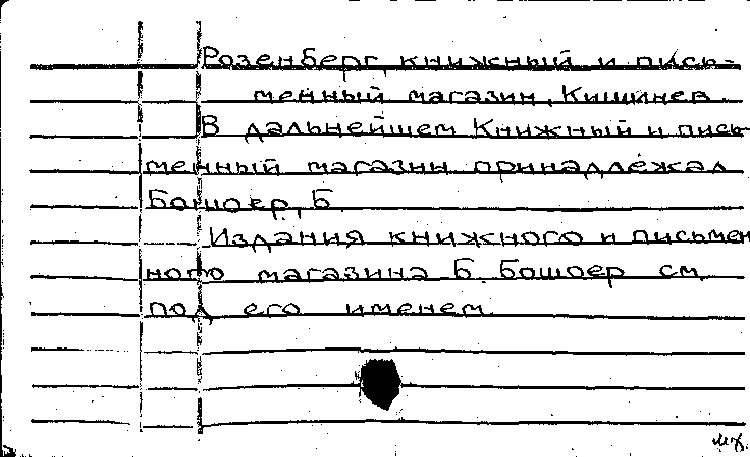 Розенберг, книжный и пись-
менный магазин, Кишинев.
В дальнейшем Книжный и пись-
менный магазин принадлежал
Бошоер, Б.
Издания книжного и письмен
ного магазина Б. Бошоер см.
под его именем.